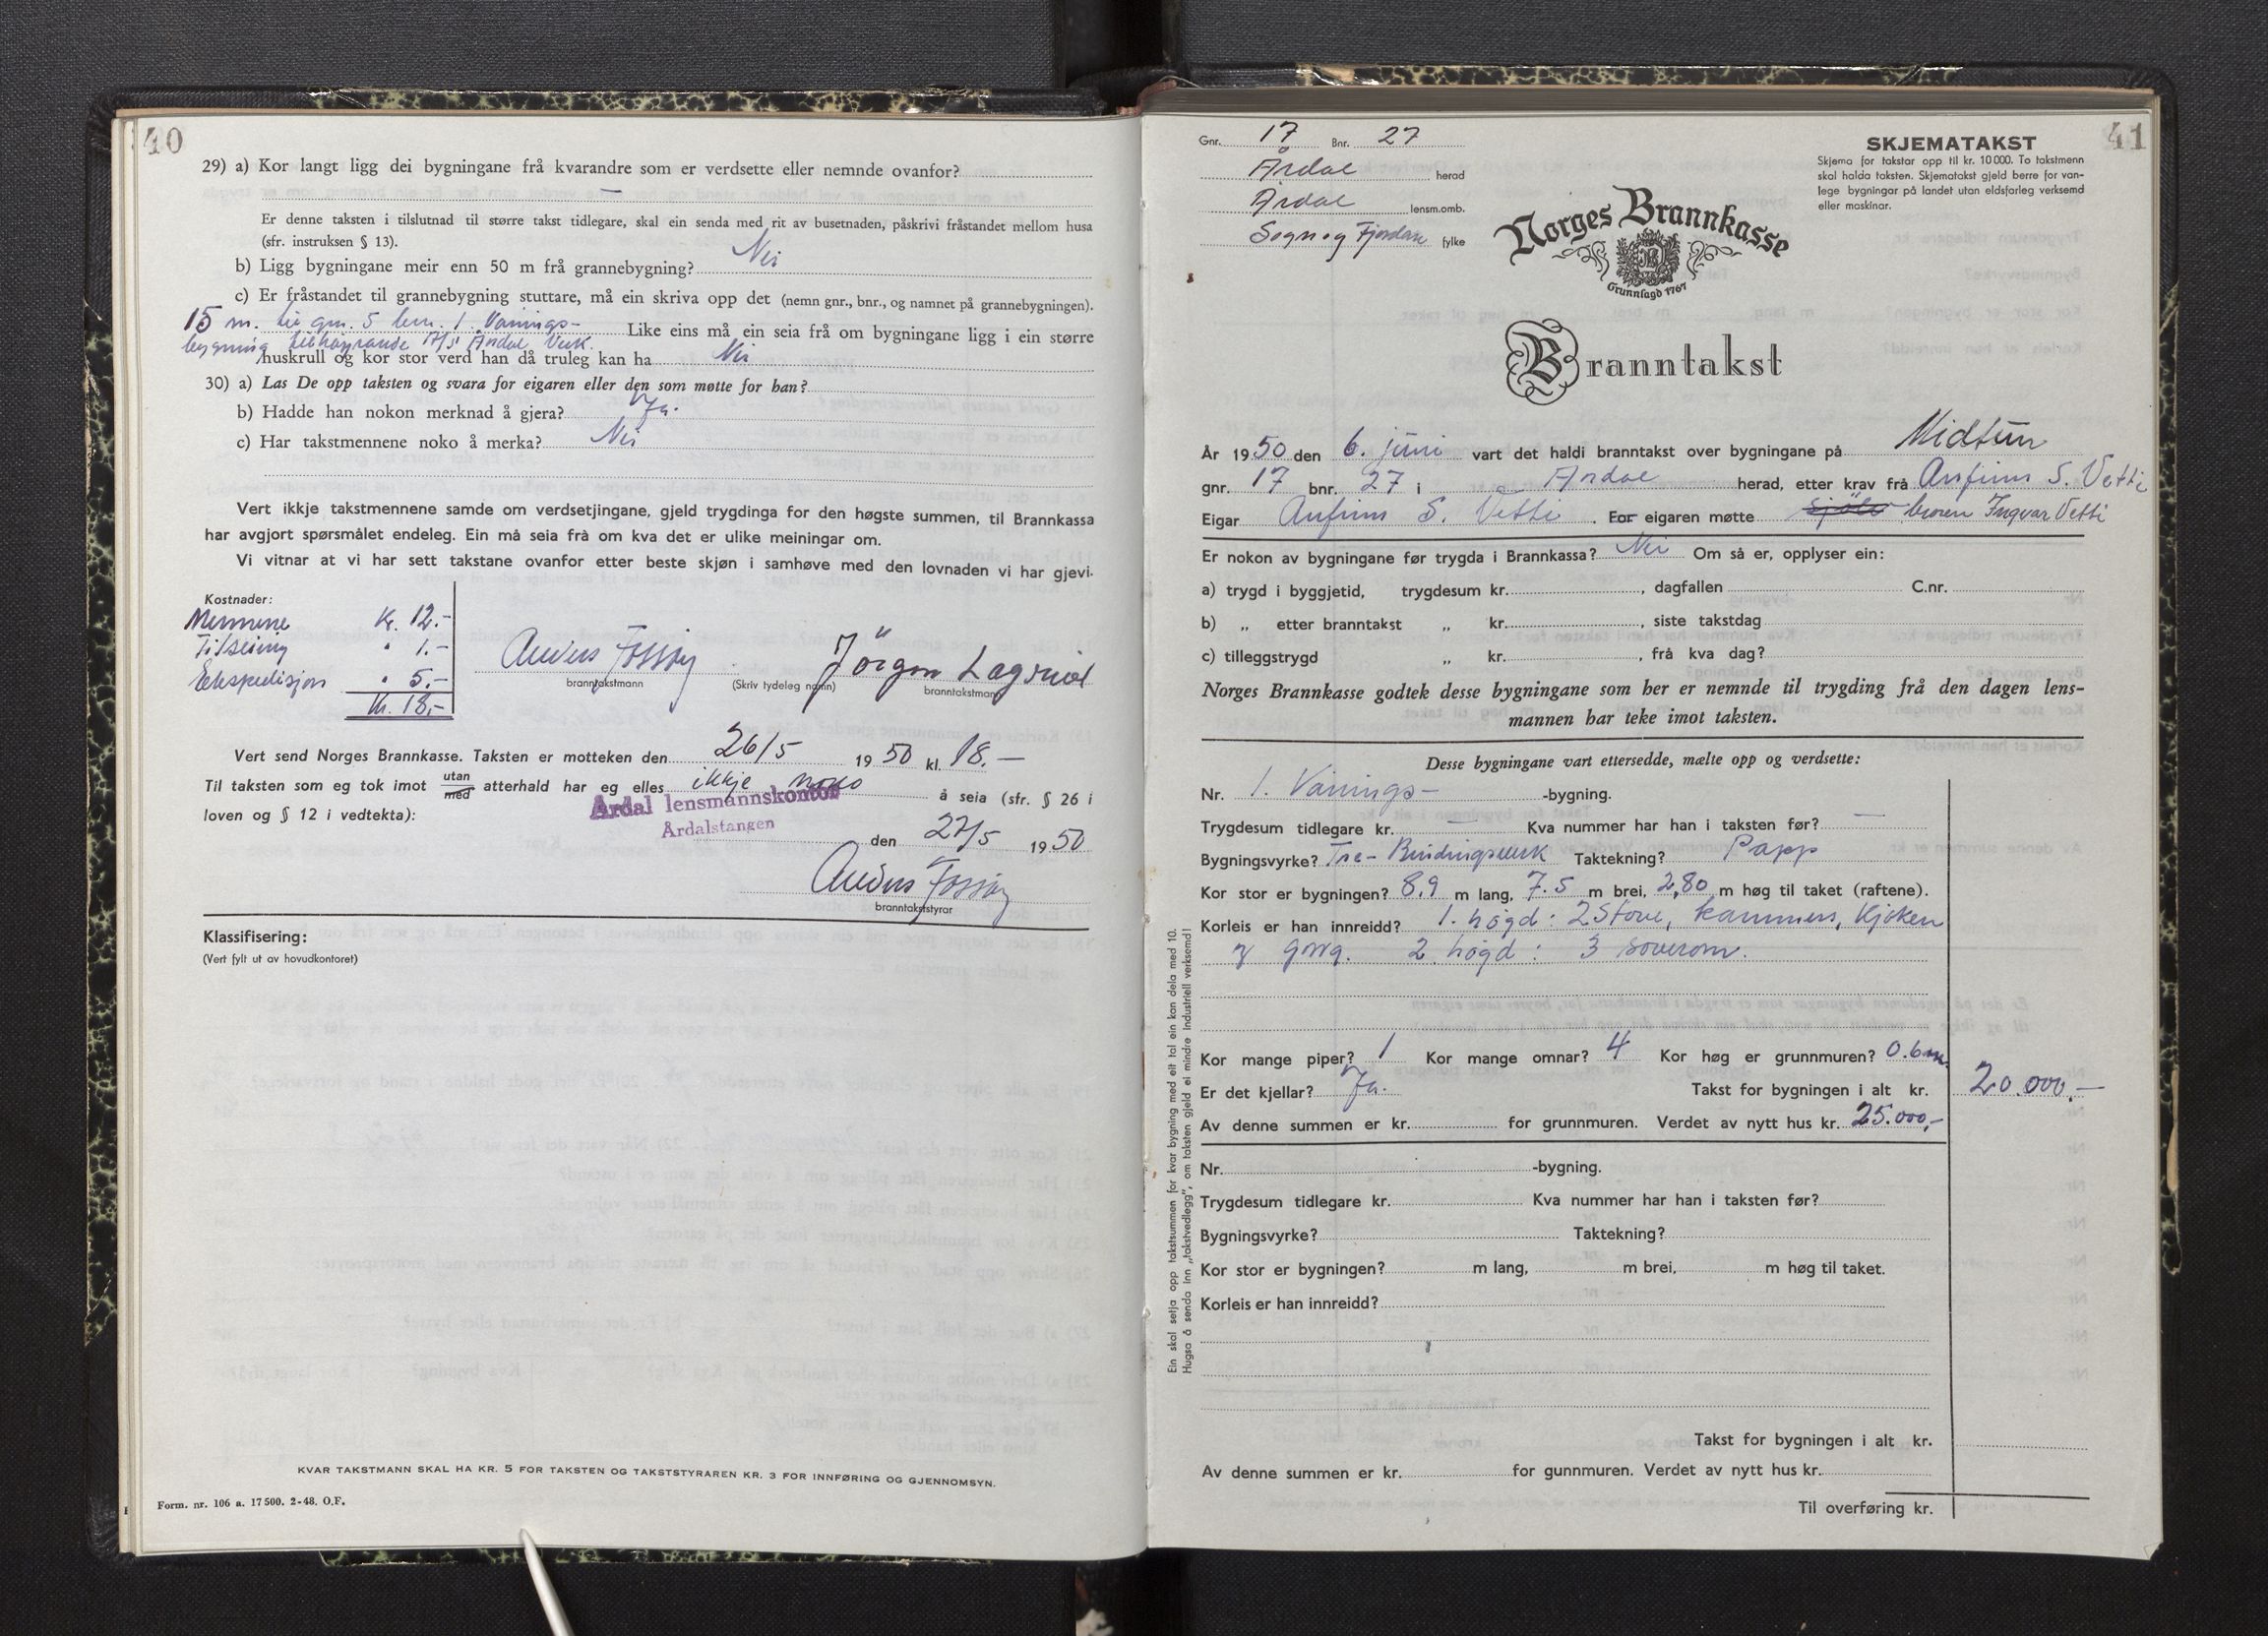 40
29) a) Kor langt ligg dei bygningane frå kvarandre som er verdsette eller nemnde ovanfor?
—
Er denne taksten i tilslutnad til større takst tidlegare, skal ein senda med rit av busetnaden, påskrivi fråstandet mellom husa
(sfr. instruksen § 13).
b) Ligg bygningane meir enn 50 m frå grannebygning? Nei
c) Er fråstandet til grannebygning stuttare, må ein skriva opp det (nemn gnr., bnr., og namnet på grannebygningen).
15 m. til gnr. 5 bnr. 1. Vånings-
bygning tilhøyrande A/S Årdal Verk.
Like eins må ein seia frå om bygningane ligg i ein større
huskrull og kor stor verd han då truleg kan ha Nei
30) a) Las De opp taksten og svara for eigaren eller den som møtte for han?
b) Hadde han nokon merknad å gjera? Ja.
c) Har takstmennene noko å merka? Nei
Vert ikkje takstmennene samde om verdsetjingane, gjeld trygdinga for den høgste summen, til Brannkassa
har avgjort spørsmålet endeleg. Ein må seia frå om kva det er ulike meiningar om.
Vi vitnar at vi har sett takstane ovanfor etter beste skjøn i samhøve med den lovnaden vi har gjevi.
Kostnader:
Mennene Kr. 12.-
Tilseing " 1.-
Ekspedisjon " 5.-
Kr. 18,-
Anders Fossøy Jörgen
branntakstmann (Skriv tydeleg namn) branntakstmann
Vert send Norges Brannkasse. Taksten er motteken den 26/5 1950 kl. 18.—
Til taksten som eg tok imot utan med atterhald har eg elles ikkje noko å seia (sfr. § 26 i
loven og § 12 i vedtekta):
Årdal lensmannskontor
Årdalstangen
den 27/5 1950
Anders Fossøy
branntakststyrar
Klassifisering:
(Vert fylt ut av hovudkontoret)
KVAR TAKSTMANN SKAL HA KR. 5 FOR TAKSTEN OG TAKSTSTYRAREN KR. 3 FOR INNFØRING OG GJENNOMSYN.
Form. nr. 106 a. 17500. 2-48. O.F.
41
Gnr. 17 Bnr. 27
Årdal herad
Årdal lensm.omb.
Sogn og Fjordane fylke
SKJEMATAKST
Skjema for takstar opp til kr. 10 000. To takstmenn
skal halda taksten. Skjematakst gjeld berre for van-
lege bygningar på landet utan eldsfarleg verksemd
eller maskinar.
Norges Brannkasse
Grunnlagd 1767
Branntakst
År 1950 den 6. juni vart det haldi branntakst over bygningane på Midtun
gnr. 17 bnr. 27 i Årdal herad, etter krav frå Anfinn S. Vetti
Eigar Anfinn S. Vetti. For eigaren møtte sjölv broren Ingvar Vetti
Er nokon av bygningane før trygda i Brannkassa? Nei Om så er, opplyser ein:
a) trygd i byggjetid, trygdesum kr. , dagfallen C.nr.
b) „ etter branntakst „ kr. , siste takstdag
c) tilleggstrygd „ kr. , frå kva dag?
Norges Brannkasse godtek desse bygningane som her er nemnde til trygding frå den dagen lens-
mannen har teke imot taksten.
Desse bygningane vart ettersedde, mælte opp og verdsette:
Nr. 1. Vånings- -bygning.
Trygdesum tidlegare kr. — Kva nummer har han i taksten før? —
Bygningsvyrke? Tre- Bindingsverk Taktekning? Papp
Kor stor er bygningen? 8,9 m lang, 7.5 m brei, 2,80 m høg til taket (raftene).
Korleis er han innreidd? 1. högd: 2 Stove, kammers, Kjøken
og gang. 2. högd: 3 soverom.
Kor mange piper? 1 Kor mange omnar? 4 Kor høg er grunnmuren? 0.6 m.
Er det kjellar? Ja. Takst for bygningen i alt kr. 20.000,—
Av denne summen er kr. for grunnmuren. Verdet av nytt hus kr. 25.000,-
Nr. -bygning.
Trygdesum tidlegare kr. Kva nummer har han i taksten før?
Bygningsvyrke? Taktekning?
Kor stor er bygningen? m lang, m brei, m høg til taket.
Korleis er han innreidd?
Takst for bygningen i alt kr.
Av denne summen er kr. for gunnmuren. Verdet av nytt hus kr.
Til overføring kr.
Ein skal setja opp takstsummen for kvar bygning med eit tal ein kan dela med 10.
Hugsa å senda inn „takstvedlegg", om taksten gjeld ei mindre industriell verksemd!